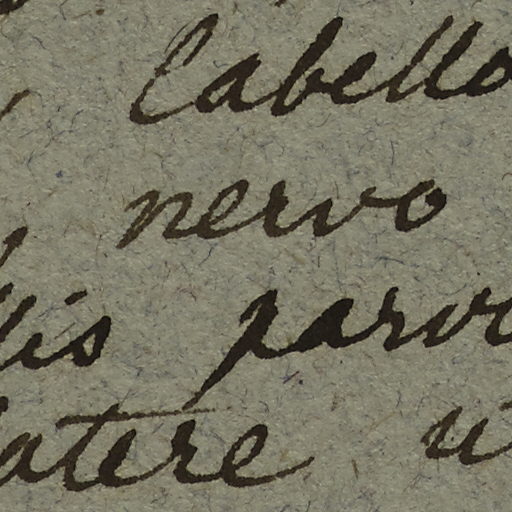 labello
nervo
lis parvo
latere u